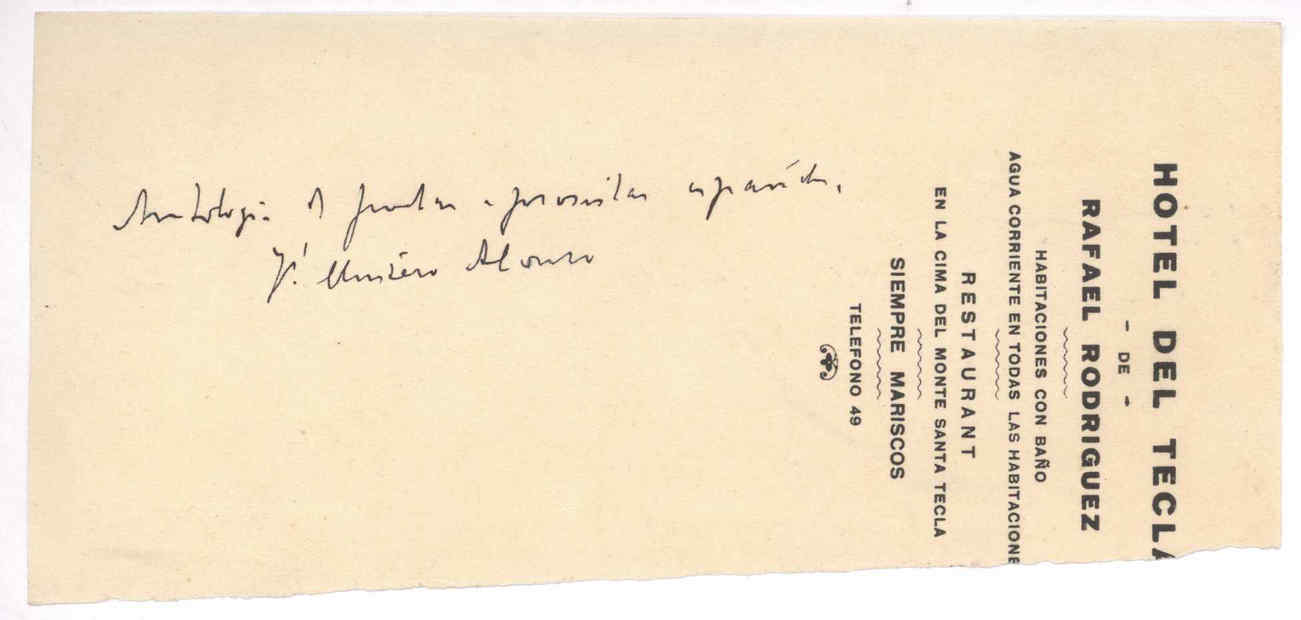 Antologia de poetas e prosistas españoles,
Alonso
HOTEL DEL TECLA
- DE -
RAFAEL RODRIGUEZ
HABITACIONES CON BAÑO
AGUA CORRIENTE EN TODAS LAS HABITACIONE
RESTAURANT
EN LA CIMA DEL MONTE SANTA TECLA
SIEMPRE MARISCOS
TELEFONO 49